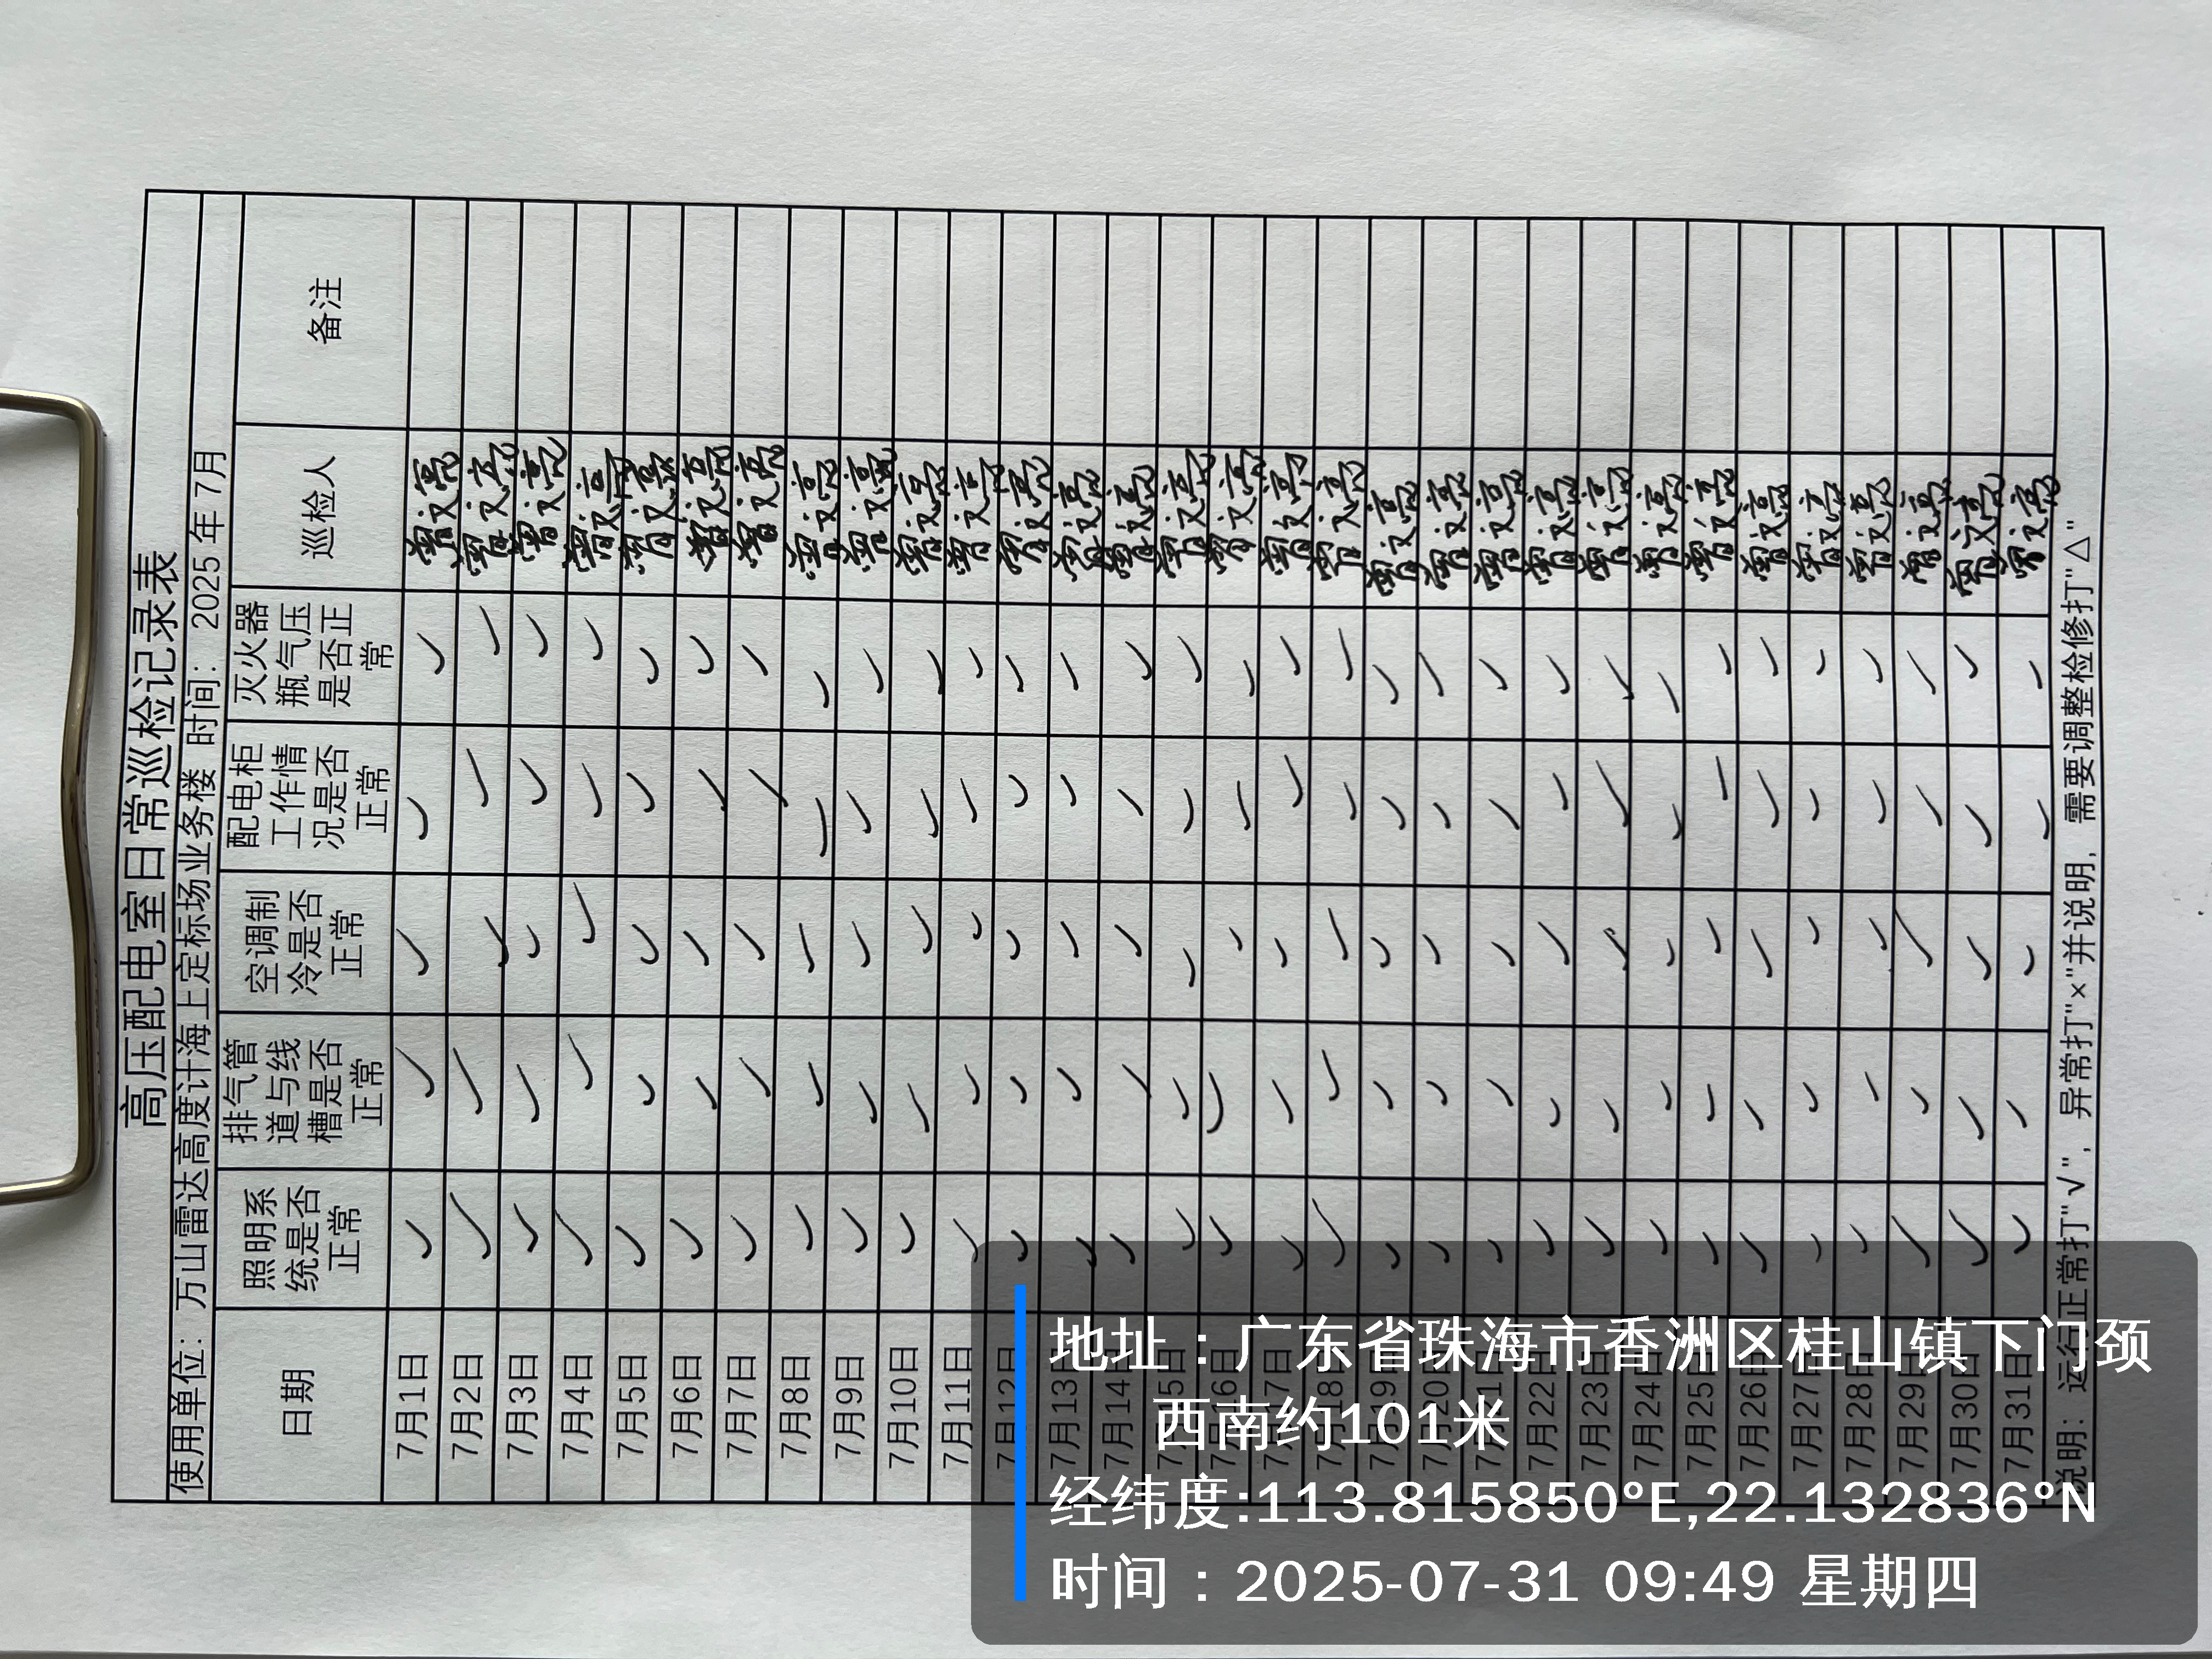 高压配电室日常巡检记录表
使用单位：万山雷达高度计海上定标场业务楼 时间：2025 年 7 月
日期 照明系统是否正常 排气管道与线槽是否正常 空调制冷是否正常 配电柜工作情况是否正常 灭火器瓶气压是否正常 巡检人 备注
7月1日 ✓ ✓ ✓ ✓ ✓
7月2日 ✓ ✓ ✓ ✓ ✓
7月3日 ✓ ✓ ✓ ✓ ✓
7月4日 ✓ ✓ ✓ ✓ ✓
7月5日 ✓ ✓ ✓ ✓ ✓
7月6日 ✓ ✓ ✓ ✓ ✓
7月7日 ✓ ✓ ✓ ✓ ✓
7月8日 ✓ ✓ ✓ ✓ ✓
7月9日 ✓ ✓ ✓ ✓ ✓
7月10日 ✓ ✓ ✓ ✓ ✓
7月11日 ✓ ✓ ✓ ✓ ✓
7月12日 ✓ ✓ ✓ ✓ ✓
7月13日 ✓ ✓ ✓ ✓ ✓
7月14日 ✓ ✓ ✓ ✓ ✓
7月15日 ✓ ✓ ✓ ✓ ✓
7月16日 ✓ ✓ ✓ ✓ ✓
7月17日 ✓ ✓ ✓ ✓ ✓
7月18日 ✓ ✓ ✓ ✓ ✓
7月19日 ✓ ✓ ✓ ✓ ✓
7月20日 ✓ ✓ ✓ ✓ ✓
7月21日 ✓ ✓ ✓ ✓ ✓
7月22日 ✓ ✓ ✓ ✓ ✓
7月23日 ✓ ✓ ✓ ✓ ✓
7月24日 ✓ ✓ ✓ ✓ ✓
7月25日 ✓ ✓ ✓ ✓ ✓
7月26日 ✓ ✓ ✓ ✓ ✓
7月27日 ✓ ✓ ✓ ✓ ✓
7月28日 ✓ ✓ ✓ ✓ ✓
7月29日 ✓ ✓ ✓ ✓ ✓
7月30日 ✓ ✓ ✓ ✓ ✓
7月31日 ✓ ✓ ✓ ✓ ✓
说明：运行正常打"√"，异常打"×"并说明，需要调整检修打"△"
地址：广东省珠海市香洲区桂山镇下门颈
西南约101米
经纬度:113.815850°E,22.132836°N
时间：2025-07-31 09:49 星期四